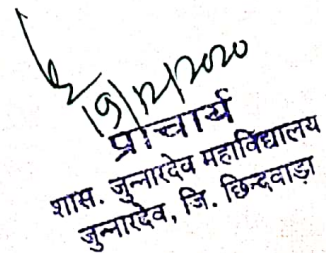 19/12/2020
प्राचार्य
शास. जुन्नारदेव महाविद्यालय
जुन्नारदेव, जि. छिन्दवाड़ा